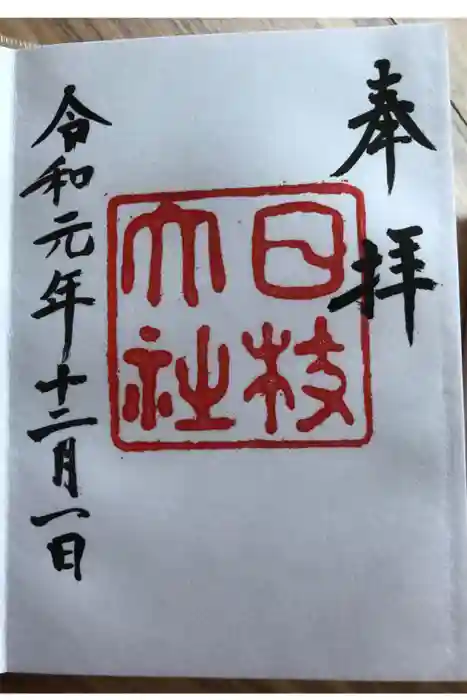 奉拝
日枝
大社
令和元年十二月一日